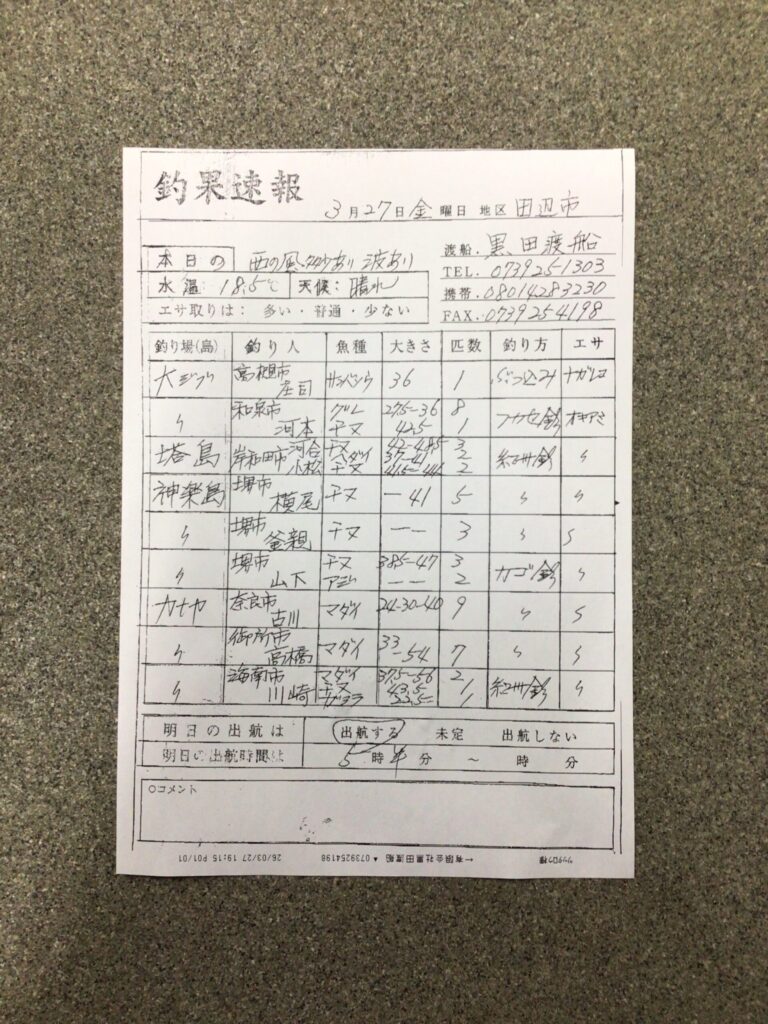 釣果速報
3月27日金曜日 地区 田辺市
渡船. 黒田渡船
本日の 西の風 波あり
TEL. 0739251303
水温 18.5℃ 天候: 晴れ
携帯. 08014283230
エサ取りは: 多い・普通・少ない
FAX. 0739254198
釣り場(島) 釣り人 魚種 大きさ 匹数 釣り方 エサ
高槻市 庄司 サンバソウ 36 1 ぶっ込み
〃 和泉市 河本 グレ 27.5-36 8 フカセ釣 オキアミ
チヌ 42.5 1
塔島 岸和田市 河合 チヌ 42-48.5 3 紀州釣 〃
マダイ 37-41 2
小松 チヌ 41.5-44 2
神楽島 堺市 横尾 チヌ -41 5 〃 〃
〃 堺市 釜親 チヌ -- 3 〃 〃
〃 堺市 山下 チヌ 38.5-47 3 カゴ釣 〃
アジ -- 2
カナヤ 奈良市 古川 マダイ 24-30-40 9 〃 〃
〃 御所市 高橋 マダイ 33-54 7 〃 〃
〃 海南市 川崎 マダイ 37.5-56 2 紀州釣 〃
チヌ 43.5 1
33.5 1
明日の出航は 出航する 未定 出航しない
明日の出航時間は 5時半分 ～ 時 分
○コメント
26/03/27 19:15 P01/01 ▲ 0739254198 ←有限会社黒田渡船